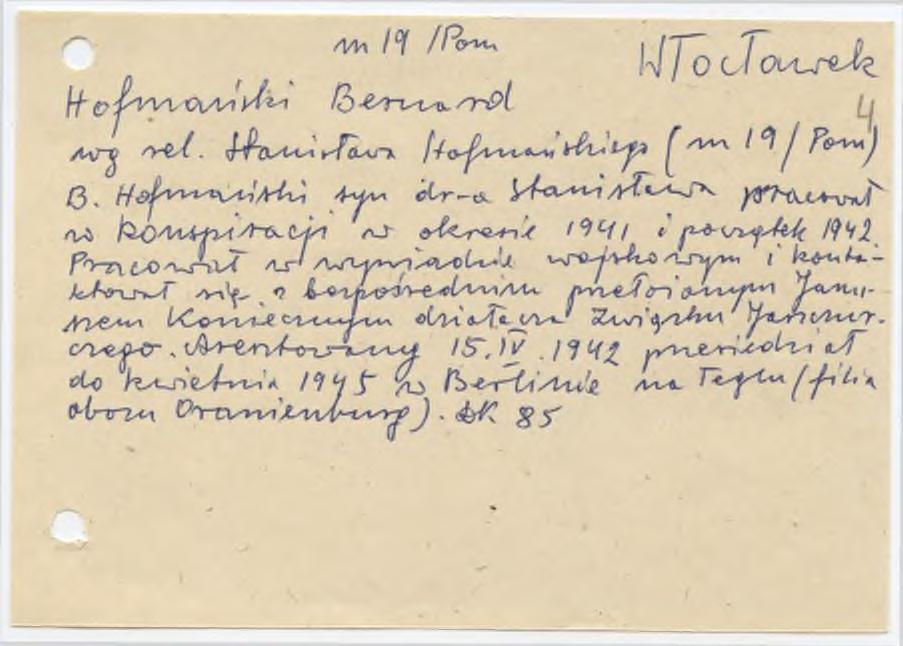 m 19 /Pom
Włocławek
4
Hofmański Bernard
wg rel. Stanisława Hofmańskiego (m 19/Pom)
B. Hofmański syn dr-a Stanisława pracował
w konspiracji w okresie 1941 i początek 1942
Pracował w wywiadzie wojskowym i konta-
ktował się z bezpośrednim przełożonym Janu-
szem Koniecznym działacza Związku
czego. Aresztowany 15.IV.1942 przesiedział
do kwietnia 1945 w Berlinie na Teglu (filia
obozu Oranienburg). 85